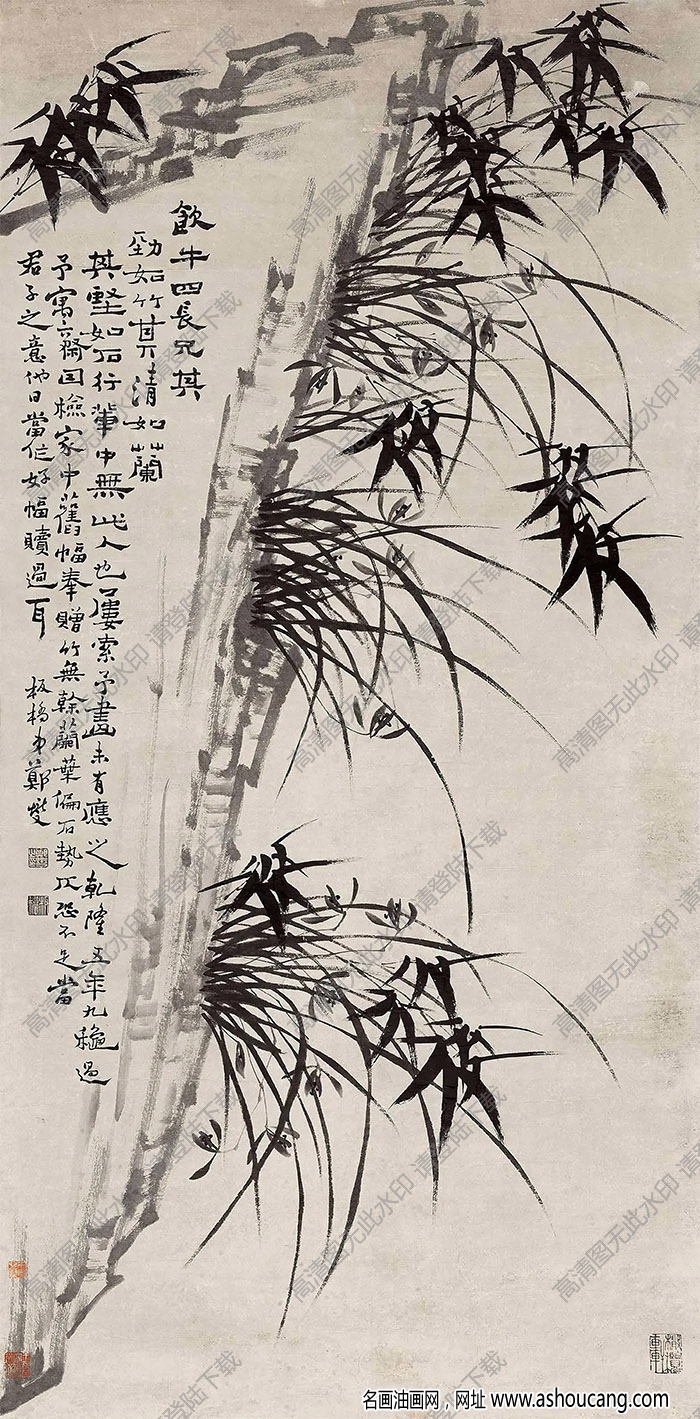 飲牛四長兄其
勁如竹其清如蘭
其堅如石行輩中無此人也屢索予畫未有應之乾隆五年九穐過
予寓齋因檢家中舊幅奉贈竹無幹蘭葉偏石勢仄恐不足當
君子之意他日當作好幅贖過耳
板橋弟鄭燮
高清图无此水印 请登陆下载
名画油画网，网址 www.ashoucang.com